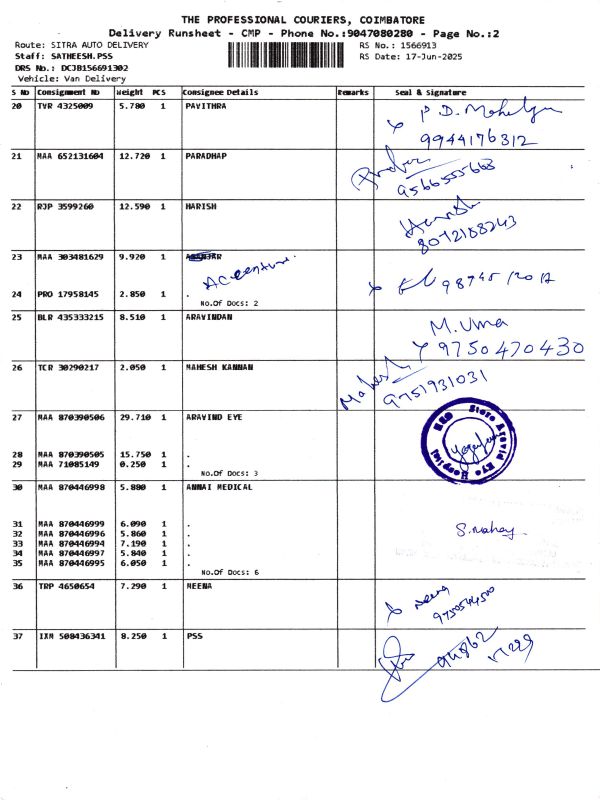 THE PROFESSIONAL COURIERS, COIMBATORE
Delivery Runsheet - CMP - Phone No.:9047080280 - Page No.:2
Route: SITRA AUTO DELIVERY RS No.: 1566913
Staff: SATHEESH.PSS RS Date: 17-Jun-2025
DRS No.: DCJB156691302
Vehicle: Van Delivery
S No Consignment No Weight PCS Consignee Details Remarks Seal & Signature
20 TVR 4325009 5.780 1 PAVITHRA
9944176312
21 MAA 652131604 12.720 1 PARADHAP
9566555663
22 RJP 3599260 12.590 1 HARISH
Harish
8072188243
23 MAA 303481629 9.920 1
Accenture.
24 PRO 17958145 2.850 1 .
No.Of Docs: 2
25 BLR 435333215 8.510 1 ARAVINDAN
M. Uma
9750470430
26 TCR 30290217 2.050 1 MAHESH KANNAN
Mahesh
9751931031
27 MAA 870390506 29.710 1 ARAVIND EYE
Store Aravind Eye Hospital
28 MAA 870390505 15.750 1 .
29 MAA 71085149 0.250 1 .
No.Of Docs: 3
30 MAA 870446998 5.880 1 ANNAI MEDICAL
31 MAA 870446999 6.090 1 .
32 MAA 870446996 5.860 1 .
33 MAA 870446994 7.190 1 .
34 MAA 870446997 5.840 1 .
35 MAA 870446995 6.050 1 .
No.Of Docs: 6
36 TRP 4650654 7.290 1 MEENA
37 IXM 508436341 8.250 1 PSS